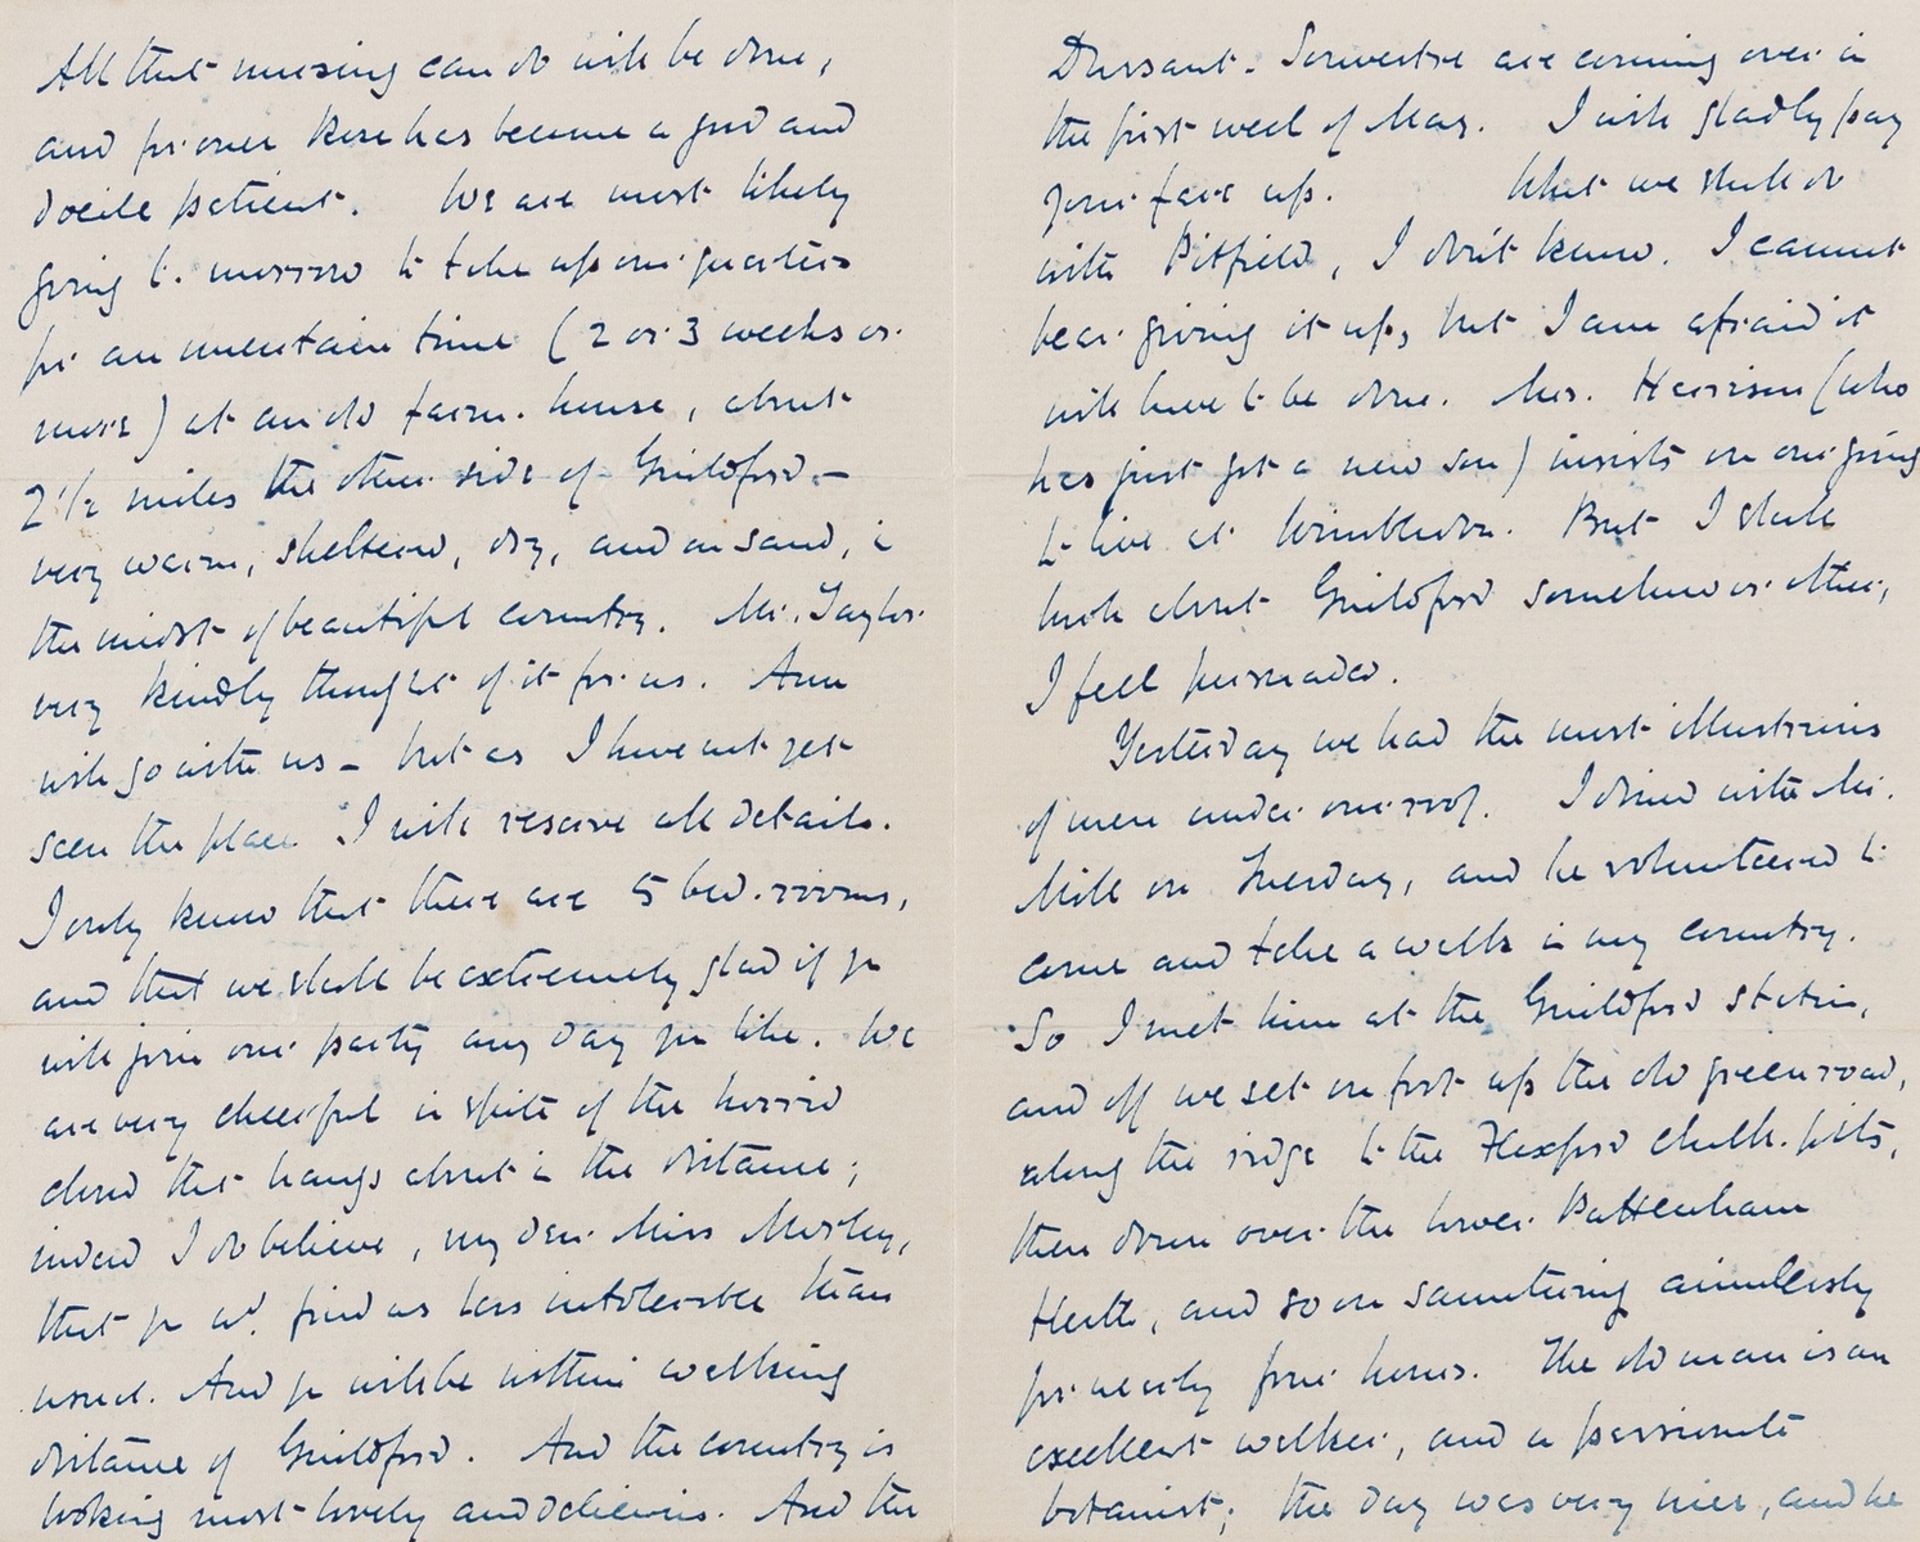 All that nursing can do will be done,
and poor Rose has become a good and
docile patient. We are most likely
going to-morrow to take up our quarters
for an uncertain time (2 or 3 weeks or
more) at an old farm-house, about
2 1/2 miles the other side of Guildford –
very warm, sheltered, dry, and on sand, in
the midst of beautiful country. Mr. Taylor
very kindly thought of it for us. Ann
will go with us – but as I have not yet
seen the place I will reserve all details.
I only know that there are 5 bed-rooms,
and that we shall be extremely glad if yr
will join our party any day yu like. We
are very cheerful in spite of the horrid
cloud that hangs about in the distance;
indeed I do believe, my dear Miss Morley,
that yu wd. find us less intolerable than
usual. And yu will be within walking
distance of Guildford. And the country is
looking most lovely and delicious. And the
Dussaut-Souvestre are coming over in
the first week of May. I will gladly pay
your fare up. What we shall do
with Pitfield, I don't know. I cannot
bear giving it up, but I am afraid it
will have to be done. Mrs. Harrison (who
has just got a new son) insists on our going
to live at Wimbledon. But I shall
hook about Guildford somehow or other,
I feel persuaded.
Yesterday we had the most illustrious
of men under our roof. I dined with Mr.
Mill on Tuesday, and he volunteered to
come and take a walk in my country.
So I met him at the Guildford station,
and off we set on foot up the old green road,
along the ridge to the Flexford chalk-pits,
then down over the lower Puttenham
Heath, and so on sauntering aimlessly
for nearly four hours. The old man is an
excellent walker, and a passionate
botanist; the day was very nice, and he